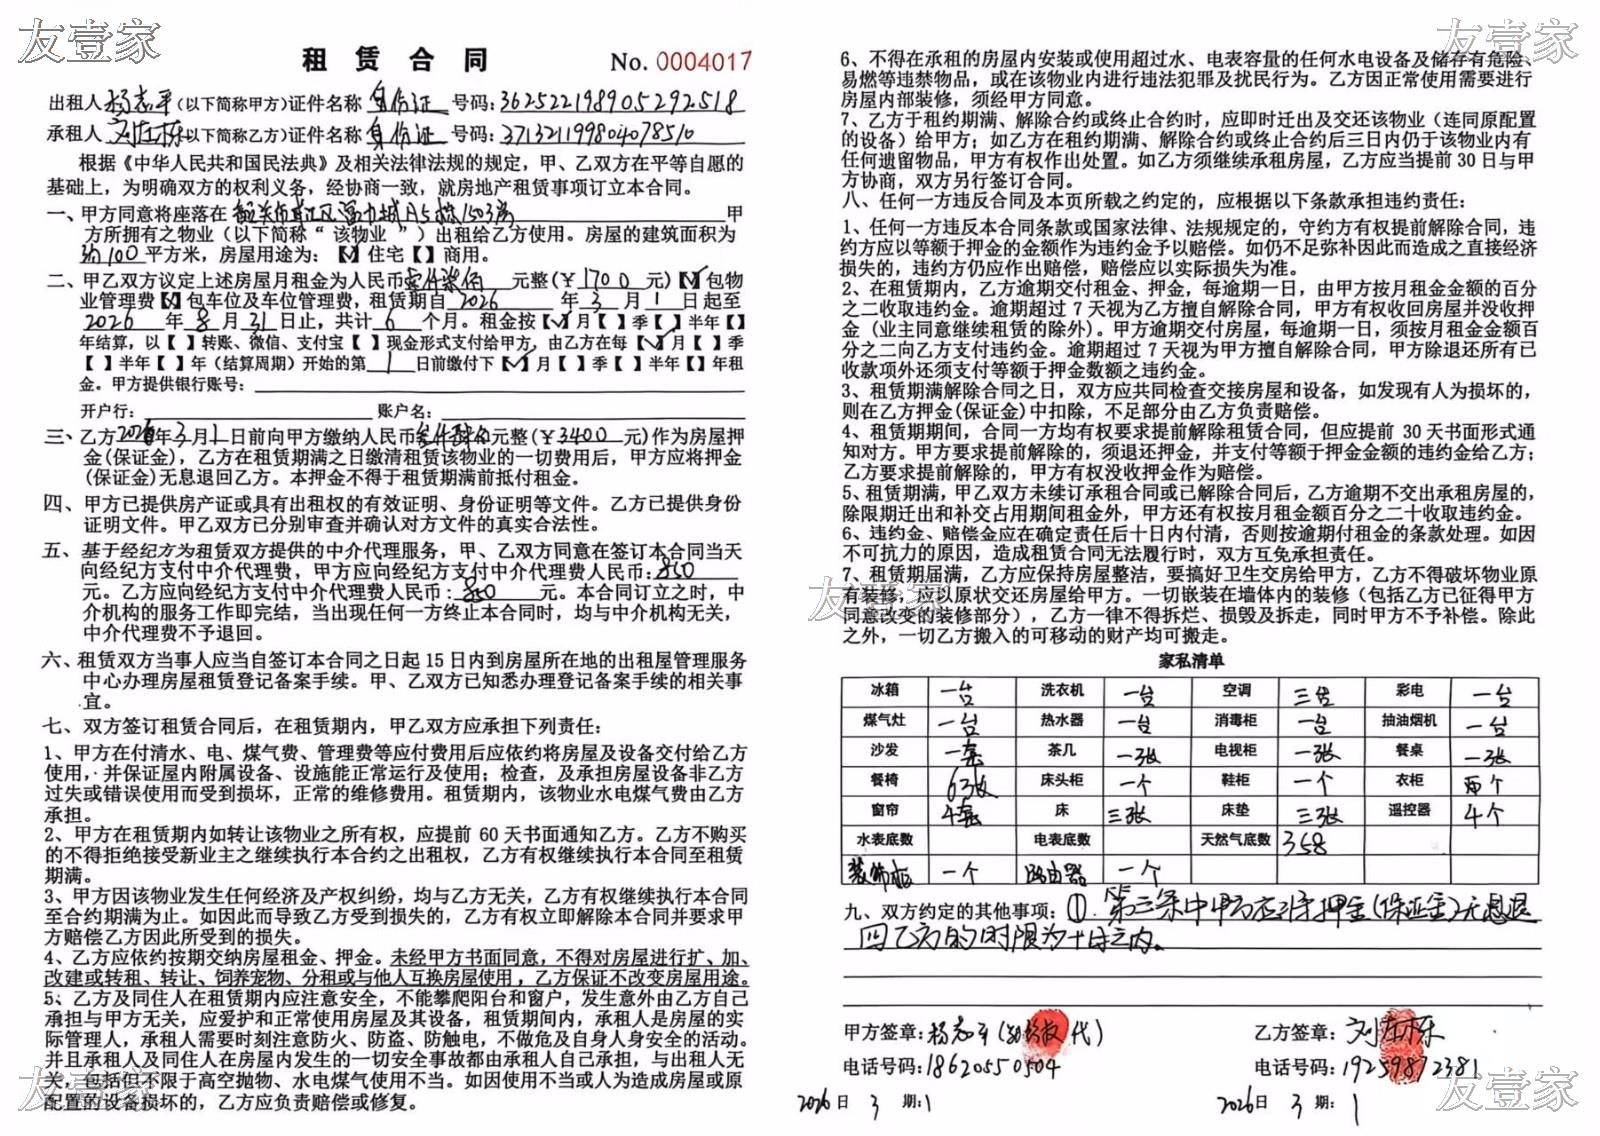 友壹家
友壹家
租 赁 合 同 No. 0004017
出租人 杨志平(以下简称甲方)证件名称 身份证 号码:362522198905292518
承租人 刘在栎(以下简称乙方)证件名称 身份证 号码:371321199804078510
根据《中华人民共和国民法典》及相关法律法规的规定，甲、乙双方在平等自愿的
基础上，为明确双方的权利义务，经协商一致，就房地产租赁事项订立本合同。
一、甲方同意将座落在 韶关市武江区富力城A5栋1503房 甲
方所拥有之物业（以下简称“ 该物业 ”）出租给乙方使用。房屋的建筑面积为
约100 平方米，房屋用途为：【√】住宅【 】商用。
二、甲乙双方议定上述房屋月租金为人民币壹仟柒佰 元整(￥1700 元)【√】包物
业管理费【√】包车位及车位管理费，租赁期自 2026 年 3 月 1 日起至
2026 年 8 月 31 日止，共计 6 个月。租金按【√】月【 】季【 】半年【 】
年结算，以【 】转账、微信、支付宝【 】现金形式支付给甲方，由乙方在每【√】月【 】季
【 】半年【 】年（结算周期）开始的第 1 日前缴付下【√】月【 】季【 】半年【 】年租
金。甲方提供银行账号：
开户行： 账户名：
三、乙方 2026年3月1日前向甲方缴纳人民币叁仟肆佰元整(￥3400 元)作为房屋押
金(保证金)，乙方在租赁期满之日缴清租赁该物业的一切费用后，甲方应将押金
(保证金)无息退回乙方。本押金不得于租赁期满前抵付租金。
四、甲方已提供房产证或具有出租权的有效证明、身份证明等文件。乙方已提供身份
证明文件。甲乙双方已分别审查并确认对方文件的真实合法性。
五、基于经纪方为租赁双方提供的中介代理服务，甲、乙双方同意在签订本合同当天
向经纪方支付中介代理费，甲方应向经纪方支付中介代理费人民币：850
元。乙方应向经纪方支付中介代理费人民币：850 元。本合同订立之时，中
介机构的服务工作即完结，当出现任何一方终止本合同时，均与中介机构无关，
中介代理费不予退回。
六、租赁双方当事人应当自签订本合同之日起 15 日内到房屋所在地的出租屋管理服务
中心办理房屋租赁登记备案手续。甲、乙双方已知悉办理登记备案手续的相关事
宜。
七、双方签订租赁合同后，在租赁期内，甲乙双方应承担下列责任：
1、甲方在付清水、电、煤气费、管理费等应付费用后应依约将房屋及设备交付给乙方
使用，并保证屋内附属设备、设施能正常运行及使用；检查，及承担房屋设备非乙方
过失或错误使用而受到损坏，正常的维修费用。租赁期内，该物业水电煤气费由乙方
承担。
2、甲方在租赁期内如转让该物业之所有权，应提前 60 天书面通知乙方。乙方不购买
的不得拒绝接受新业主之继续执行本合约之出租权，乙方有权继续执行本合同至租赁
期满。
3、甲方因该物业发生任何经济及产权纠纷，均与乙方无关，乙方有权继续执行本合同
至合约期满为止。如因此而导致乙方受到损失的，乙方有权立即解除本合同并要求甲
方赔偿乙方因此所受到的损失。
4、乙方应依约按期交纳房屋租金、押金。未经甲方书面同意，不得对房屋进行扩、加、
改建或转租、转让、饲养宠物、分租或与他人互换房屋使用，乙方保证不改变房屋用途。
5、乙方及同住人在租赁期内应注意安全，不能攀爬阳台和窗户，发生意外由乙方自己
承担与甲方无关，应爱护和正常使用房屋及其设备，租赁期间内，承租人是房屋的实
际管理人，承租人需要时刻注意防火、防盗、防触电，不做危及自身人身安全的活动。
并且承租人及同住人在房屋内发生的一切安全事故都由承租人自己承担，与出租人无
关，包括但不限于高空抛物、水电煤气使用不当。如因使用不当或人为造成房屋或原
配置的设备损坏的，乙方应负责赔偿或修复。
友壹家
6、不得在承租的房屋内安装或使用超过水、电表容量的任何水电设备及储存有危险、
易燃等违禁物品，或在该物业内进行违法犯罪及扰民行为。乙方因正常使用需要进行
房屋内部装修，须经甲方同意。
7、乙方于租约期满、解除合约或终止合约时，应即时迁出及交还该物业（连同原配置
的设备）给甲方；如乙方在租约期满、解除合约或终止合约后三日内仍于该物业内有
任何遗留物品，甲方有权作出处置。如乙方须继续承租房屋，乙方应当提前 30 日与甲
方协商，双方另行签订合同。
八、任何一方违反合同及本页所载之约定的，应根据以下条款承担违约责任：
1、任何一方违反本合同条款或国家法律、法规规定的，守约方有权提前解除合同，违
约方应以等额于押金的金额作为违约金予以赔偿。如仍不足弥补因此而造成之直接经济
损失的，违约方仍应作出赔偿，赔偿应以实际损失为准。
2、在租赁期内，乙方逾期交付租金、押金，每逾期一日，由甲方按月租金金额的百分
之二收取违约金。逾期超过 7 天视为乙方擅自解除合同，甲方有权收回房屋并没收押
金（业主同意继续租赁的除外）。甲方逾期交付房屋，每逾期一日，须按月租金金额百
分之二向乙方支付违约金。逾期超过 7 天视为甲方擅自解除合同，甲方除退还所有已
收款项外还须支付等额于押金数额之违约金。
3、租赁期满解除合同之日，双方应共同检查交接房屋和设备，如发现有人为损坏的，
则在乙方押金(保证金)中扣除，不足部分由乙方负责赔偿。
4、租赁期期间，合同一方均有权要求提前解除租赁合同，但应提前 30 天书面形式通
知对方。甲方要求提前解除的，须退还押金，并支付等额于押金金额的违约金给乙方；
乙方要求提前解除的，甲方有权没收押金作为赔偿。
5、租赁期满，甲乙双方未续订承租合同或已解除合同后，乙方逾期不交出承租房屋的，
除限期迁出和补交占用期间租金外，甲方还有权按月租金额百分之二十收取违约金。
6、违约金、赔偿金应在确定责任后十日内付清，否则按逾期付租金的条款处理。如因
不可抗力的原因，造成租赁合同无法履行时，双方互免承担责任。
7、租赁期届满，乙方应保持房屋整洁，要搞好卫生交房给甲方，乙方不得破坏物业原
有装修，应以原状交还房屋给甲方。一切嵌装在墙体内的装修（包括乙方已征得甲方
同意改变的装修部分），乙方一律不得拆烂、损毁及拆走，同时甲方不予补偿。除此
之外，一切乙方搬入的可移动的财产均可搬走。
友壹家
家私清单
冰箱 一台 洗衣机 一台 空调 三台 彩电 一台
煤气灶 一台 热水器 一台 消毒柜 一台 抽油烟机 一台
沙发 一套 茶几 一张 电视柜 一张 餐桌 一张
餐椅 6张 床头柜 一个 鞋柜 一个 衣柜 两个
窗帘 4套 床 三张 床垫 三张 遥控器 4个
水表底数 电表底数 天然气底数 358
装饰柜 一个 路由器 一个
九、双方约定的其他事项：①.第三条中甲方应将押金(保证金)无息退
回乙方的时限为十日之内。
甲方签章：杨志平( 代) 乙方签章：刘在栎
电话号码:18620550504 电话号码:19259872381
2026日 3 期：1 2026日 3 期：1
友壹家